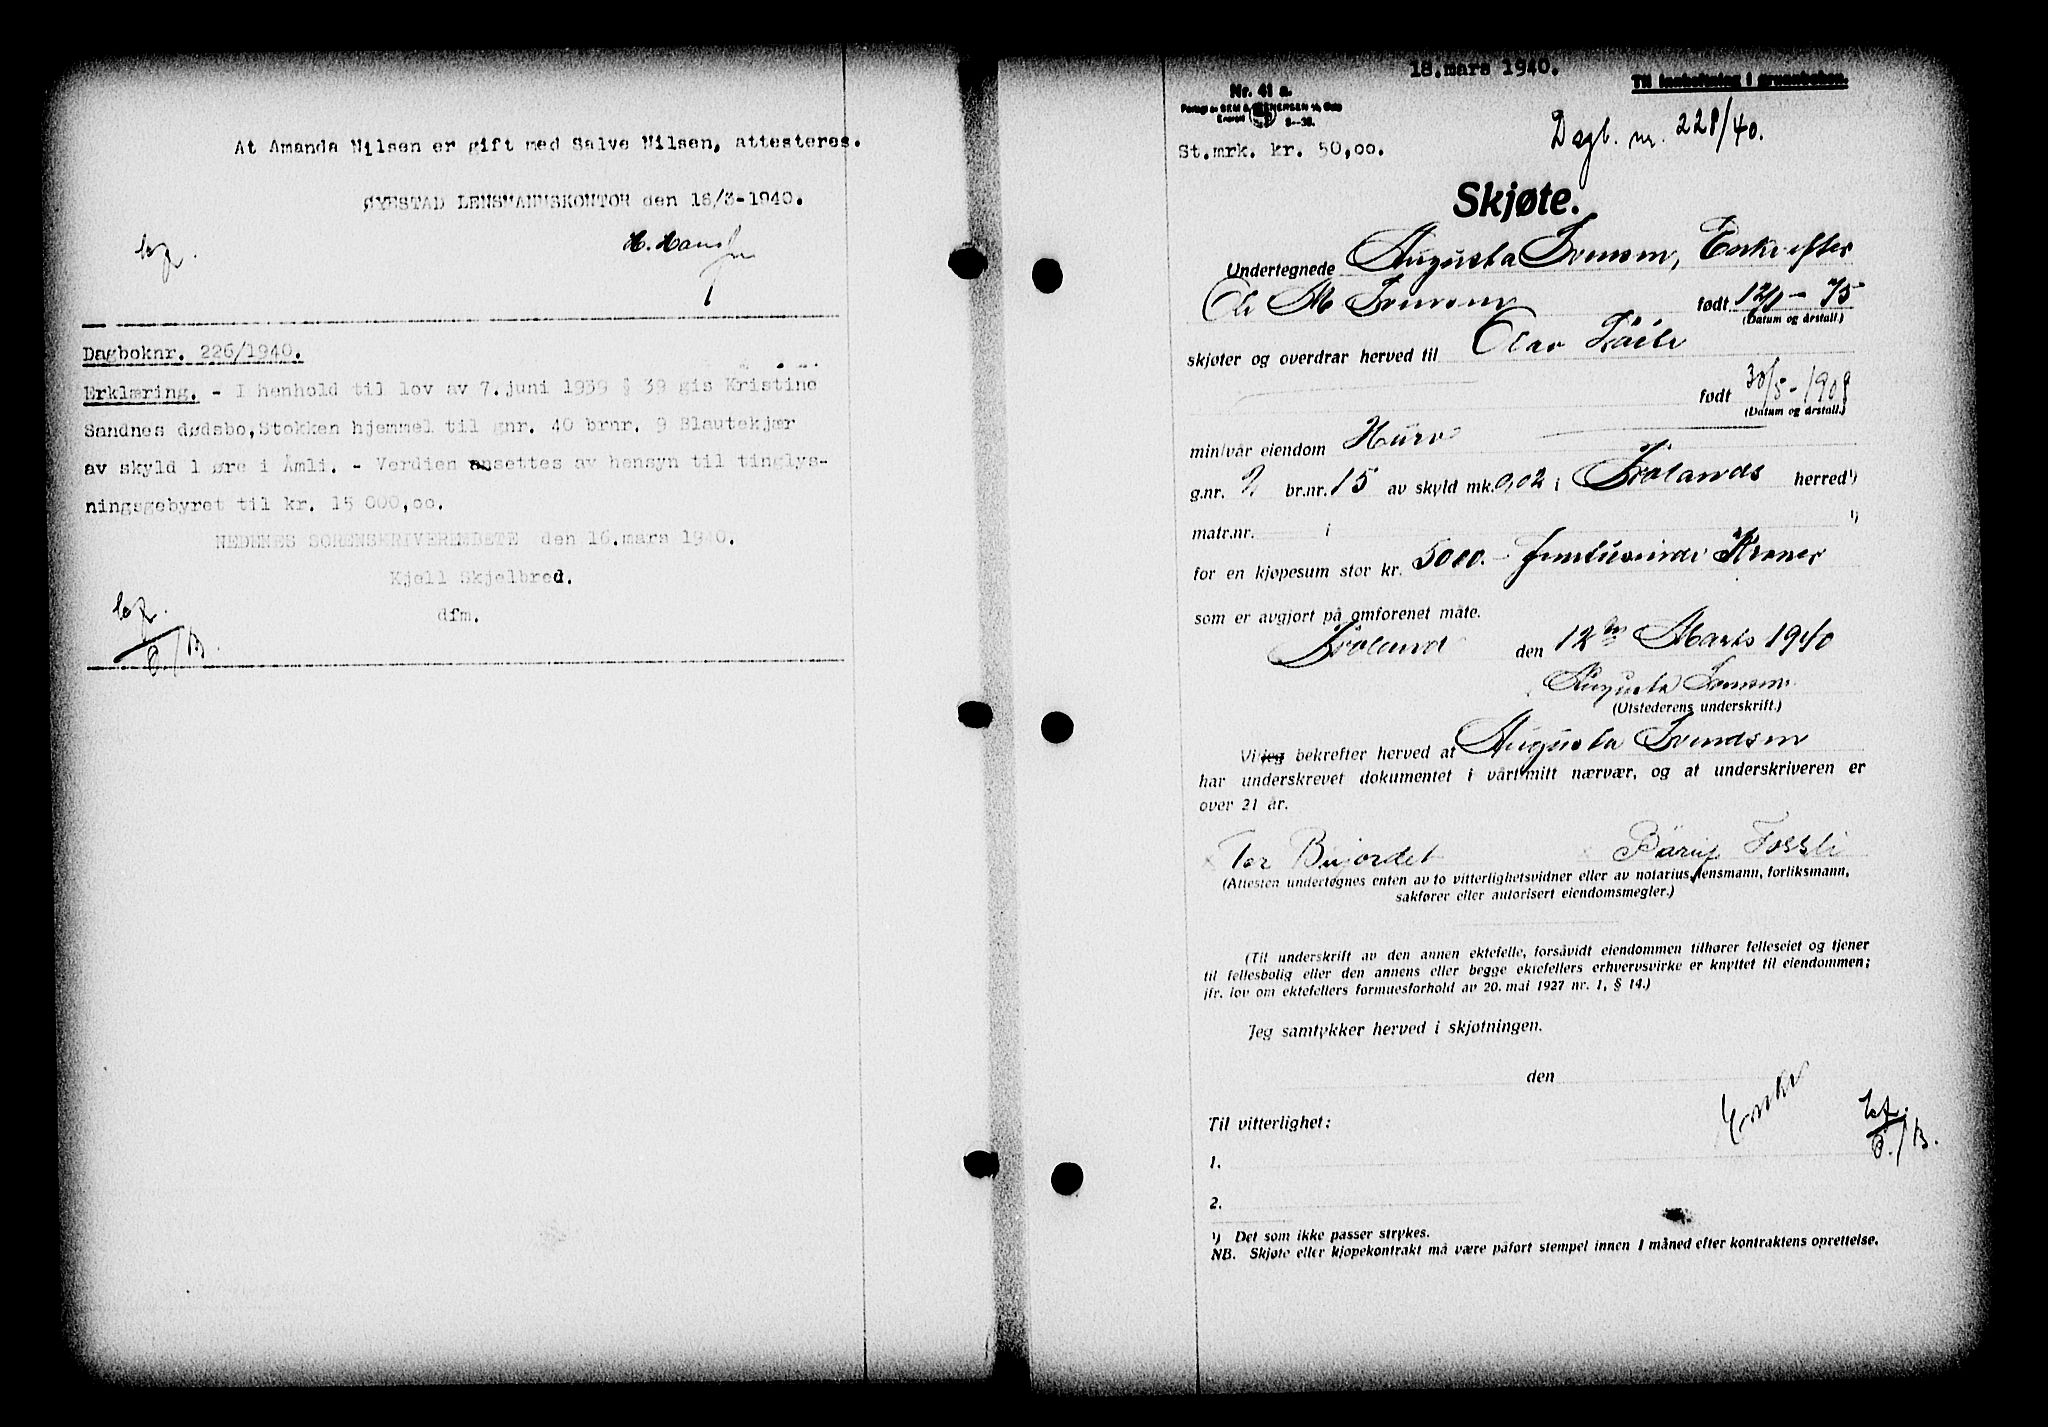 At Amanda Nilsen er gift med Salve Nilsen, attesteres.
ØYESTAD LENSMANNSKONTOR den 16/3-1940.
Dagboknr. 226/1940.
Erklæring. - I henhold til lov av 7. juni 1939 § 39 gis Kristine
Sandnes dødsbo, Stokken hjemmel til gnr. 40 brnr. 9 Blautekjær
av skyld 1 øre i Åmli. - Verdien ansettes av hensyn til tinglys-
ningsgebyret til kr. 15 000,oo.
NEDENES SORENSKRIVEREMBETE den 16.mars 1940.
Kjell Skjelbred.
dfm.
18.mars 1940.
Til innheftning i grunnboken.
Nr. 41 a.
Dagb. nr. 228/40.
St.mrk. kr. 50,oo.
Skjøte.
Undertegnede Augusta Svensen, Enke efter
Ole M Svensen født 12/1 - 75
(Datum og årstall.)
skjøter og overdrar herved til Olav
født 30/5 - 1908
(Datum og årstall.)
min/vår eiendom
g.nr. 2 br.nr. 15 av skyld mk. 0,02 i Frolands herred ¹)
matr.nr. i ¹)
for en kjøpesum stor kr. 5000. Femtusinde Kroner
som er avgjort på omforenet måte.
Froland den 12 te Marts 1940
Augusta Svensen
(Utstederens underskrift.)
Vi/jeg bekrefter herved at Augusta Svendsen
har underskrevet dokumentet i vårt/mitt nærvær, og at underskriveren er
over 21 år.
Tor Bujordet Børuf Fossli
(Attesten undertegnes enten av to vitterlighetsvidner eller av notarius, lensmann, forliksmann,
sakfører eller autorisert eiendomsmegler.)
(Til underskrift av den annen ektefelle, forsåvidt eiendommen tilhører felleseiet og tjener
til fellesbolig eller den annens eller begge ektefellers erhvervsvirke er knyttet til eiendommen;
jfr. lov om ektefellers formuesforhold av 20. mai 1927 nr. 1, § 14.)
Jeg samtykker herved i skjøtningen.
den
Enke
Til vitterlighet:
1.
2.
¹) Det som ikke passer strykes.
NB. Skjøte eller kjøpekontrakt må være påført stempel innen 1 måned efter kontraktens oprettelse.